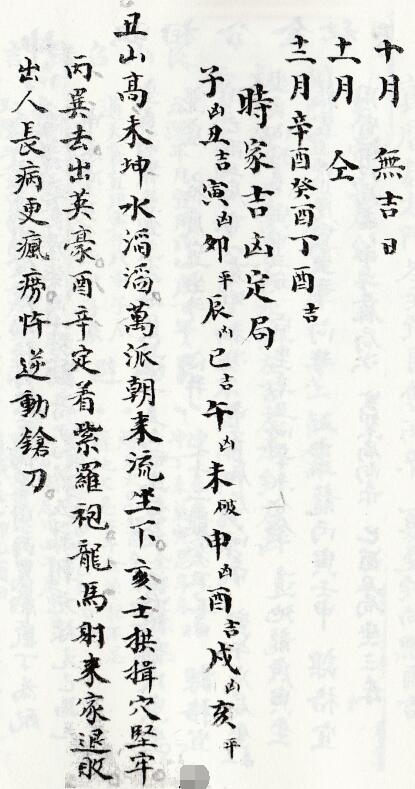 十月 無吉日
十一月 仝
十二月 辛酉癸酉丁酉吉
時家吉凶定局
子凶丑吉寅凶卯平辰凶巳吉午凶未破申凶酉吉戌凶亥平
丑山高未坤水滔滔萬派朝来流坐下亥壬拱揖穴堅牢
丙巽去出英豪酉辛定着紫羅袍龍馬射来家退敗
出人長病更瘋癆忤逆動鎗刀